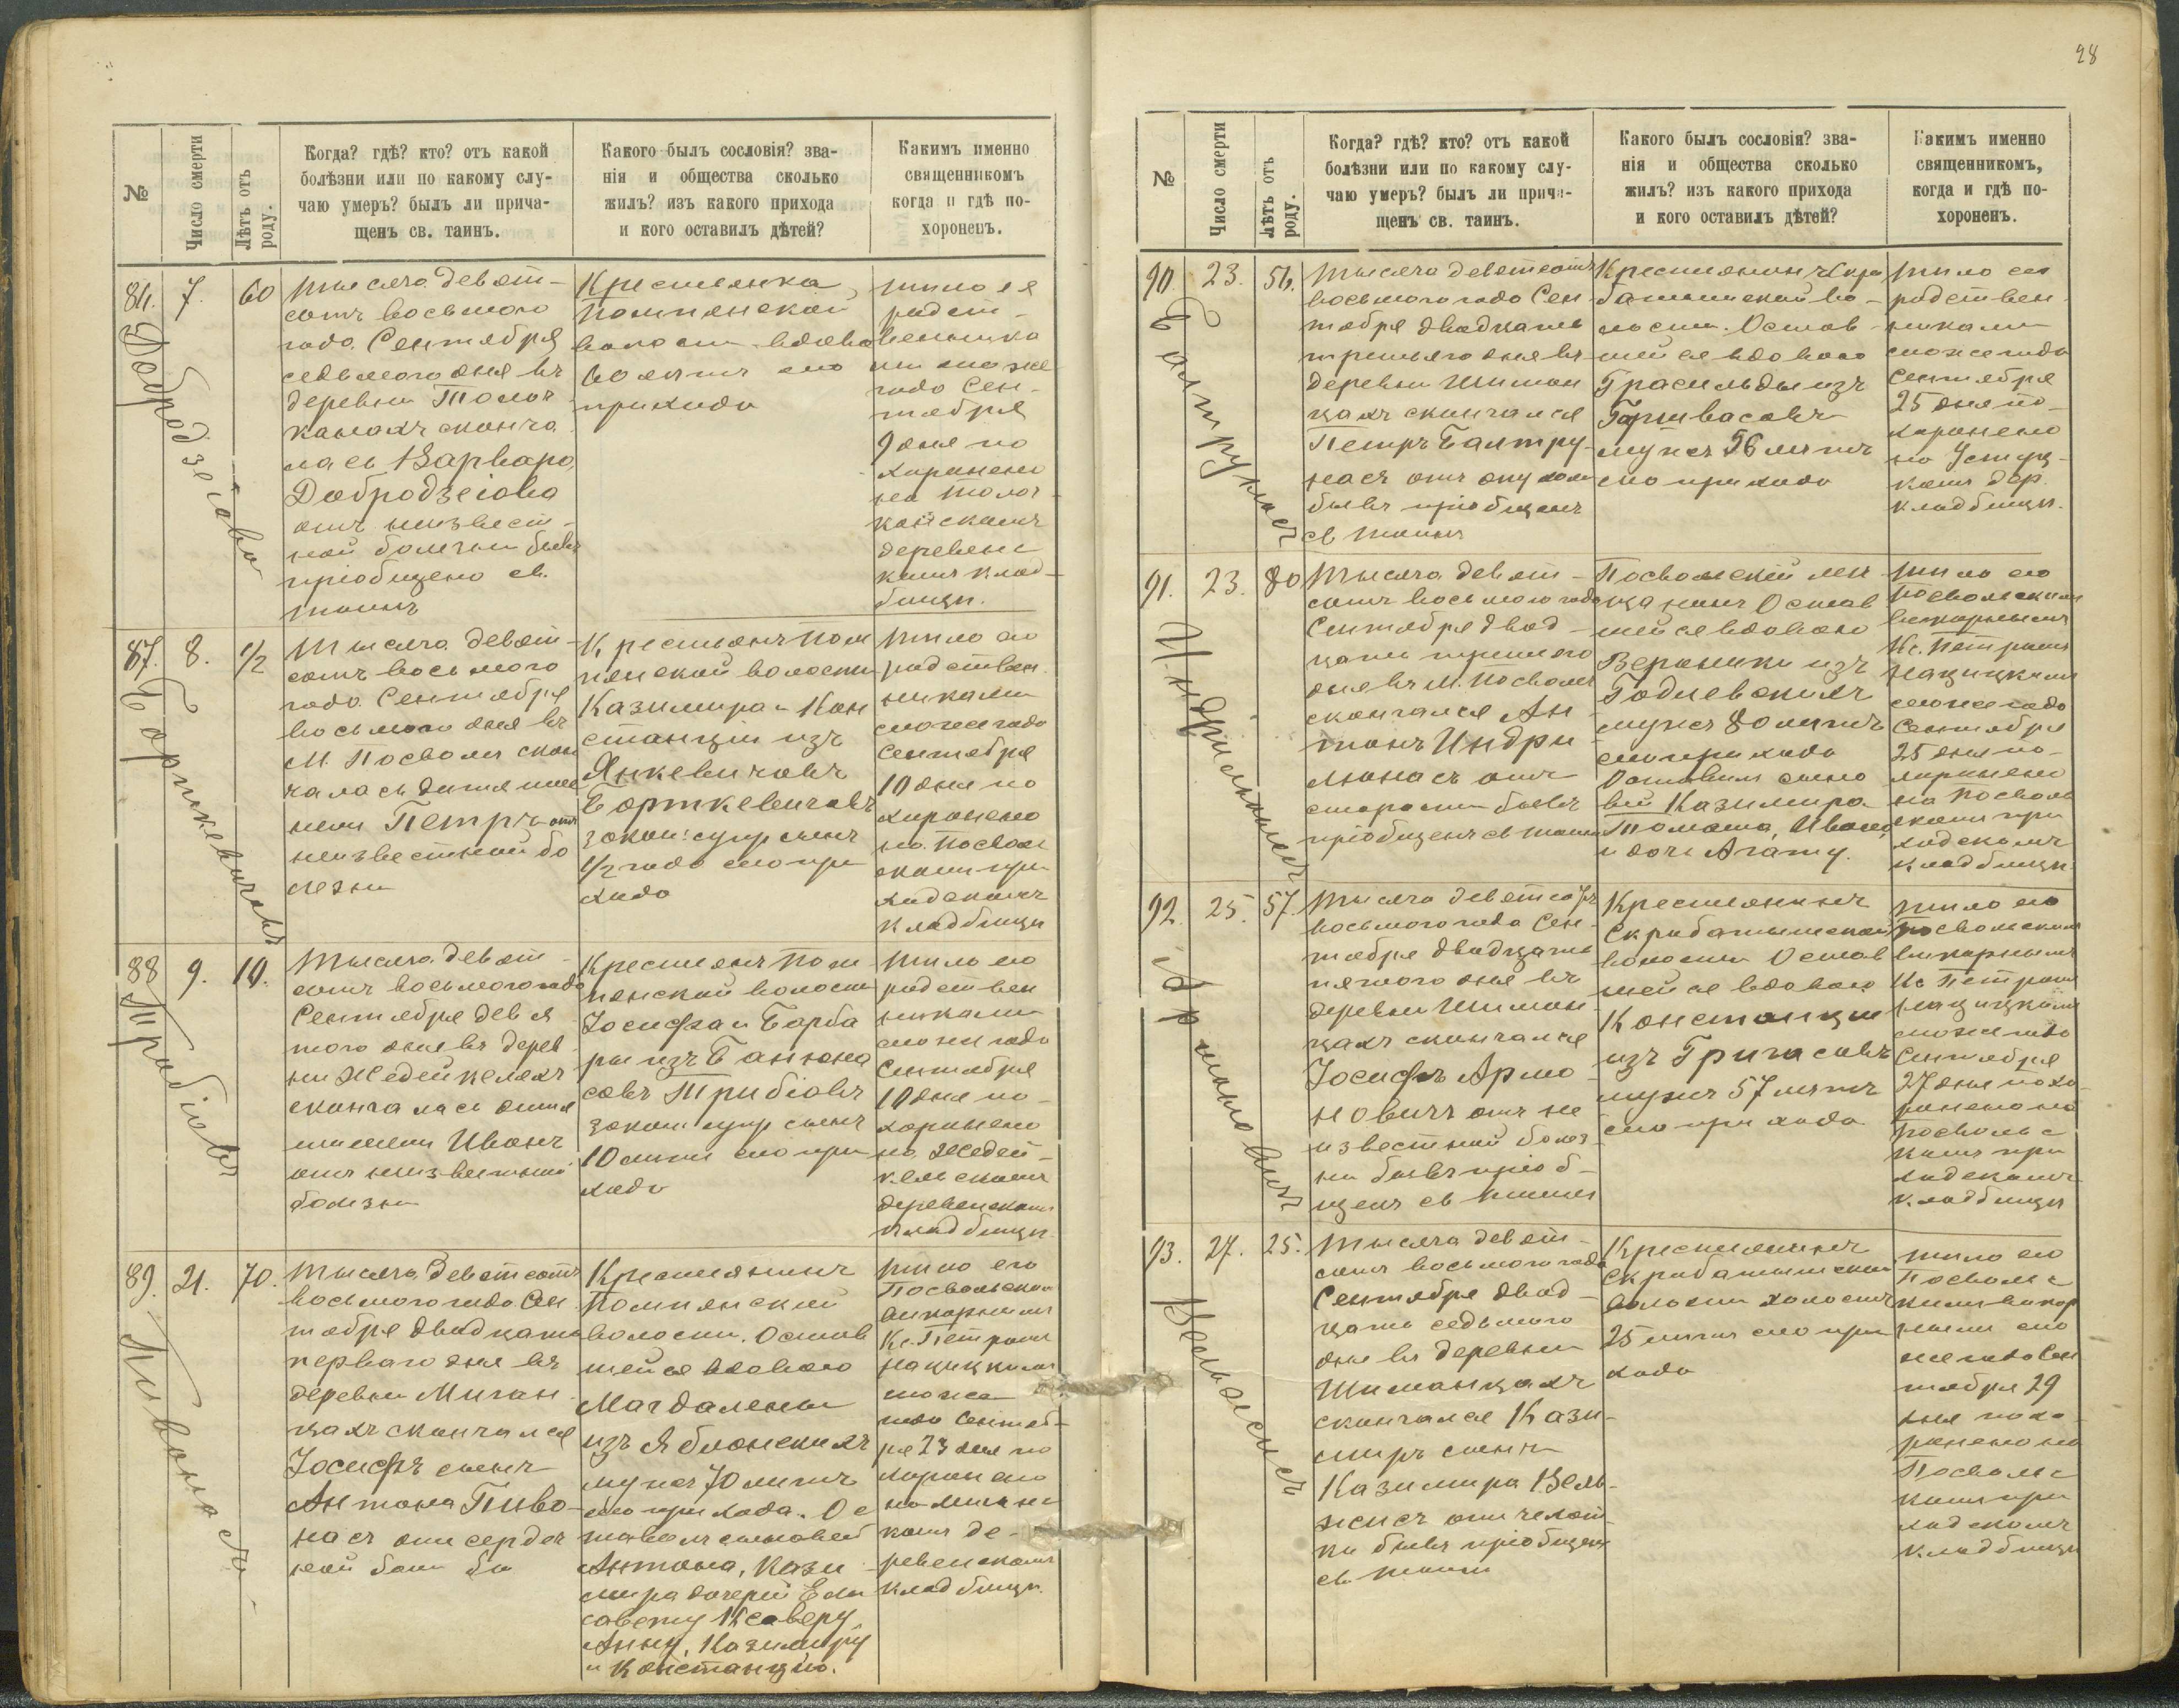 28
№
Число смерти
Лѣтъ отъ роду.
Когда? гдѣ? кто? отъ какой
болѣзни или по какому слу-
чаю умеръ? былъ ли прича-
щенъ св. таинъ.
Какого былъ сословія? зва-
нія и общества сколько
жилъ? изъ какого прихода
и кого оставилъ дѣтей?
Какимъ именно
священникомъ
когда и гдѣ по-
хороненъ.
7.
60
Тысяча девят-
сотъ восьмого
года Сентября
седьмого дня въ
деревни Толоч
канахъ сконча
лась Варвара
Добродзеіова
отъ неизвест-
ной болезни бывъ
пріобщено св.
таинъ
Крестьянка
Помпянской
волости вдова
60 летъ сего
прихода
тело ея
родст-
венника
ми того же
года Сен-
тября
9 дня по
хоронено
на Толоч
канскомъ
деревенс
комъ клад-
бищи.
87.
8.
1/2
Тысяча девят-
сотъ восьмого
года Сентября
восьмого дня въ
М Посволи скон
чалась дитя име
неи Петръ отъ
неизвестной бо
лезни
Крестьянъ Пом
пянской волости
Казимира и Кон
станціи изъ
Янкевичовъ
Борткевичовъ
закон: супр сынъ
1/2 года сего при
хода
тело его
родствен
никами
того же года
Сентября
10 дня по
хоронено
на Посволь
скомъ при
ходскомъ
кладбищи
Борткевичовъ
88
9.
10.
Тысяча девят-
сотъ восьмого года
Сентября девя
того дня въ дерев
ни Жедейкеляхъ
скончалась дитя
именеи Иванъ
отъ неизвестной
болезни
Крестьянъ Пом
пянской волости
Іосифа и Барба
ры изъ Банюна
совъ Трибіовъ
закон супр сынъ
10 летъ сего при
хода
тело его
родствен
никами
того же года
Сентября
10 дня по-
хоронено
на Жедей-
кельскомъ
деревенскомъ
кладбищи.
Трибіовъ
89.
21.
70.
Тысяча девятсотъ
восьмого года Сен
тября двадцать
перваго дня въ
деревни Миган
цахъ скончался
Іосифъ сынъ
Антона Пиво-
насъ отъ сердеч
ной
Крестьянинъ
Помпянской
волости. Остав
шейся вдовою
Магдалены
изъ Яблонскихъ
мужъ 70 летъ
сего прихода. Ос
тавилъ сыновей
Антона, Кази
мира дочерей Ели
савету Ксаверу,
Анну, Казимиру
и Констанцію.
тело его
Посвольским
викарнымъ
Кс. Петромъ
того же
года Сентяб-
ря 23 дня по
хоронено
комъ де-
ревенскомъ
кладбищи.
Пивонасъ
№
Число смерти
Лѣтъ отъ роду.
Когда? гдѣ? кто? отъ какой
болѣзни или по какому слу-
чаю умеръ? былъ ли прича-
щенъ св. таинъ.
Какого былъ сословія? зва-
нія и общества сколько
жилъ? изъ какого прихода
и кого оставилъ дѣтей?
Какимъ именно
священникомъ,
когда и гдѣ по-
хороненъ.
90.
23.
56.
Тысяча девятсотъ
восьмого года Сен
тября двадцать
третьяго дня въ
деревни Шиман
цахъ скончался
Петръ Балтру-
насъ отъ опухоли
бывъ пріобщенъ
св таинъ
Крестьянинъ Скро
батишской во-
лости. Остав
шейся вдовою
Грасильды изъ
мужъ 56 летъ
сего прихода
тело его
родствен
никами
того же года
Сентября
25 дня по-
хоронено
на
комъ дер.
кладбищи.
Балтрунасъ
91.
23.
80
Тысяча девят-
сотъ восьмого года
Сентября двад-
цать третьяго
дня въ М. Посволи
скончался Ан
тонъ Индри
люнасъ отъ
старости бывъ
пріобщенъ св таинъ
Посвольскій мещ
цанинъ Остав
шейся вдовою
Вероники изъ
Годлевскихъ
мужъ 80 летъ
сего прихода
Оставилъ сыно
вей Казимира
Томаша, Ивана
и дочь Агату.
тело его
Посвольскимъ
викарнымъ
Кс. Петромъ
того же года
Сентября
25 дня по-
хоронено
на Посволь
скомъ при
ходскомъ
кладбищи.
Индрилюнасъ
92.
25.
57.
Тысяча девятсотъ
восьмого года Сен-
тября двадцать
пятого дня въ
деревни Шиман-
цахъ скончался
Іосифъ Армо-
новичъ отъ не
известной болез
ни бывъ пріоб-
щенъ св таинъ
Крестьянинъ
Скробатишской
волости Остав
шейся вдовою
Констанции
изъ Григасовъ
мужъ 57 летъ
сего прихода
тело его
Посвольским
викарнымъ
Кс Петромъ
того же года
Сентября
27 дня похо-
ронено на
Посвольс
комъ при
ходскомъ
кладбищи
Армоновичъ
93.
27.
25.
Тысяча девят-
сотъ восьмого года
Сентября двад-
цать седьмого
дня въ деревни
Шиманцахъ
скончался Кази-
миръ сынъ
Казимира Вель-
жисъ отъ чехот-
ки бывъ пріобщенъ
св таинъ
Крестьянинъ
Скробатишской
волости холостъ
25 летъ сего при
хода
тело его
Посвольс
кимъ викар
нымъ того
же года Сен
тября 29
дня похо-
ронено на
Посвольс
комъ при
ходскомъ
кладбищи
Вельжисъ